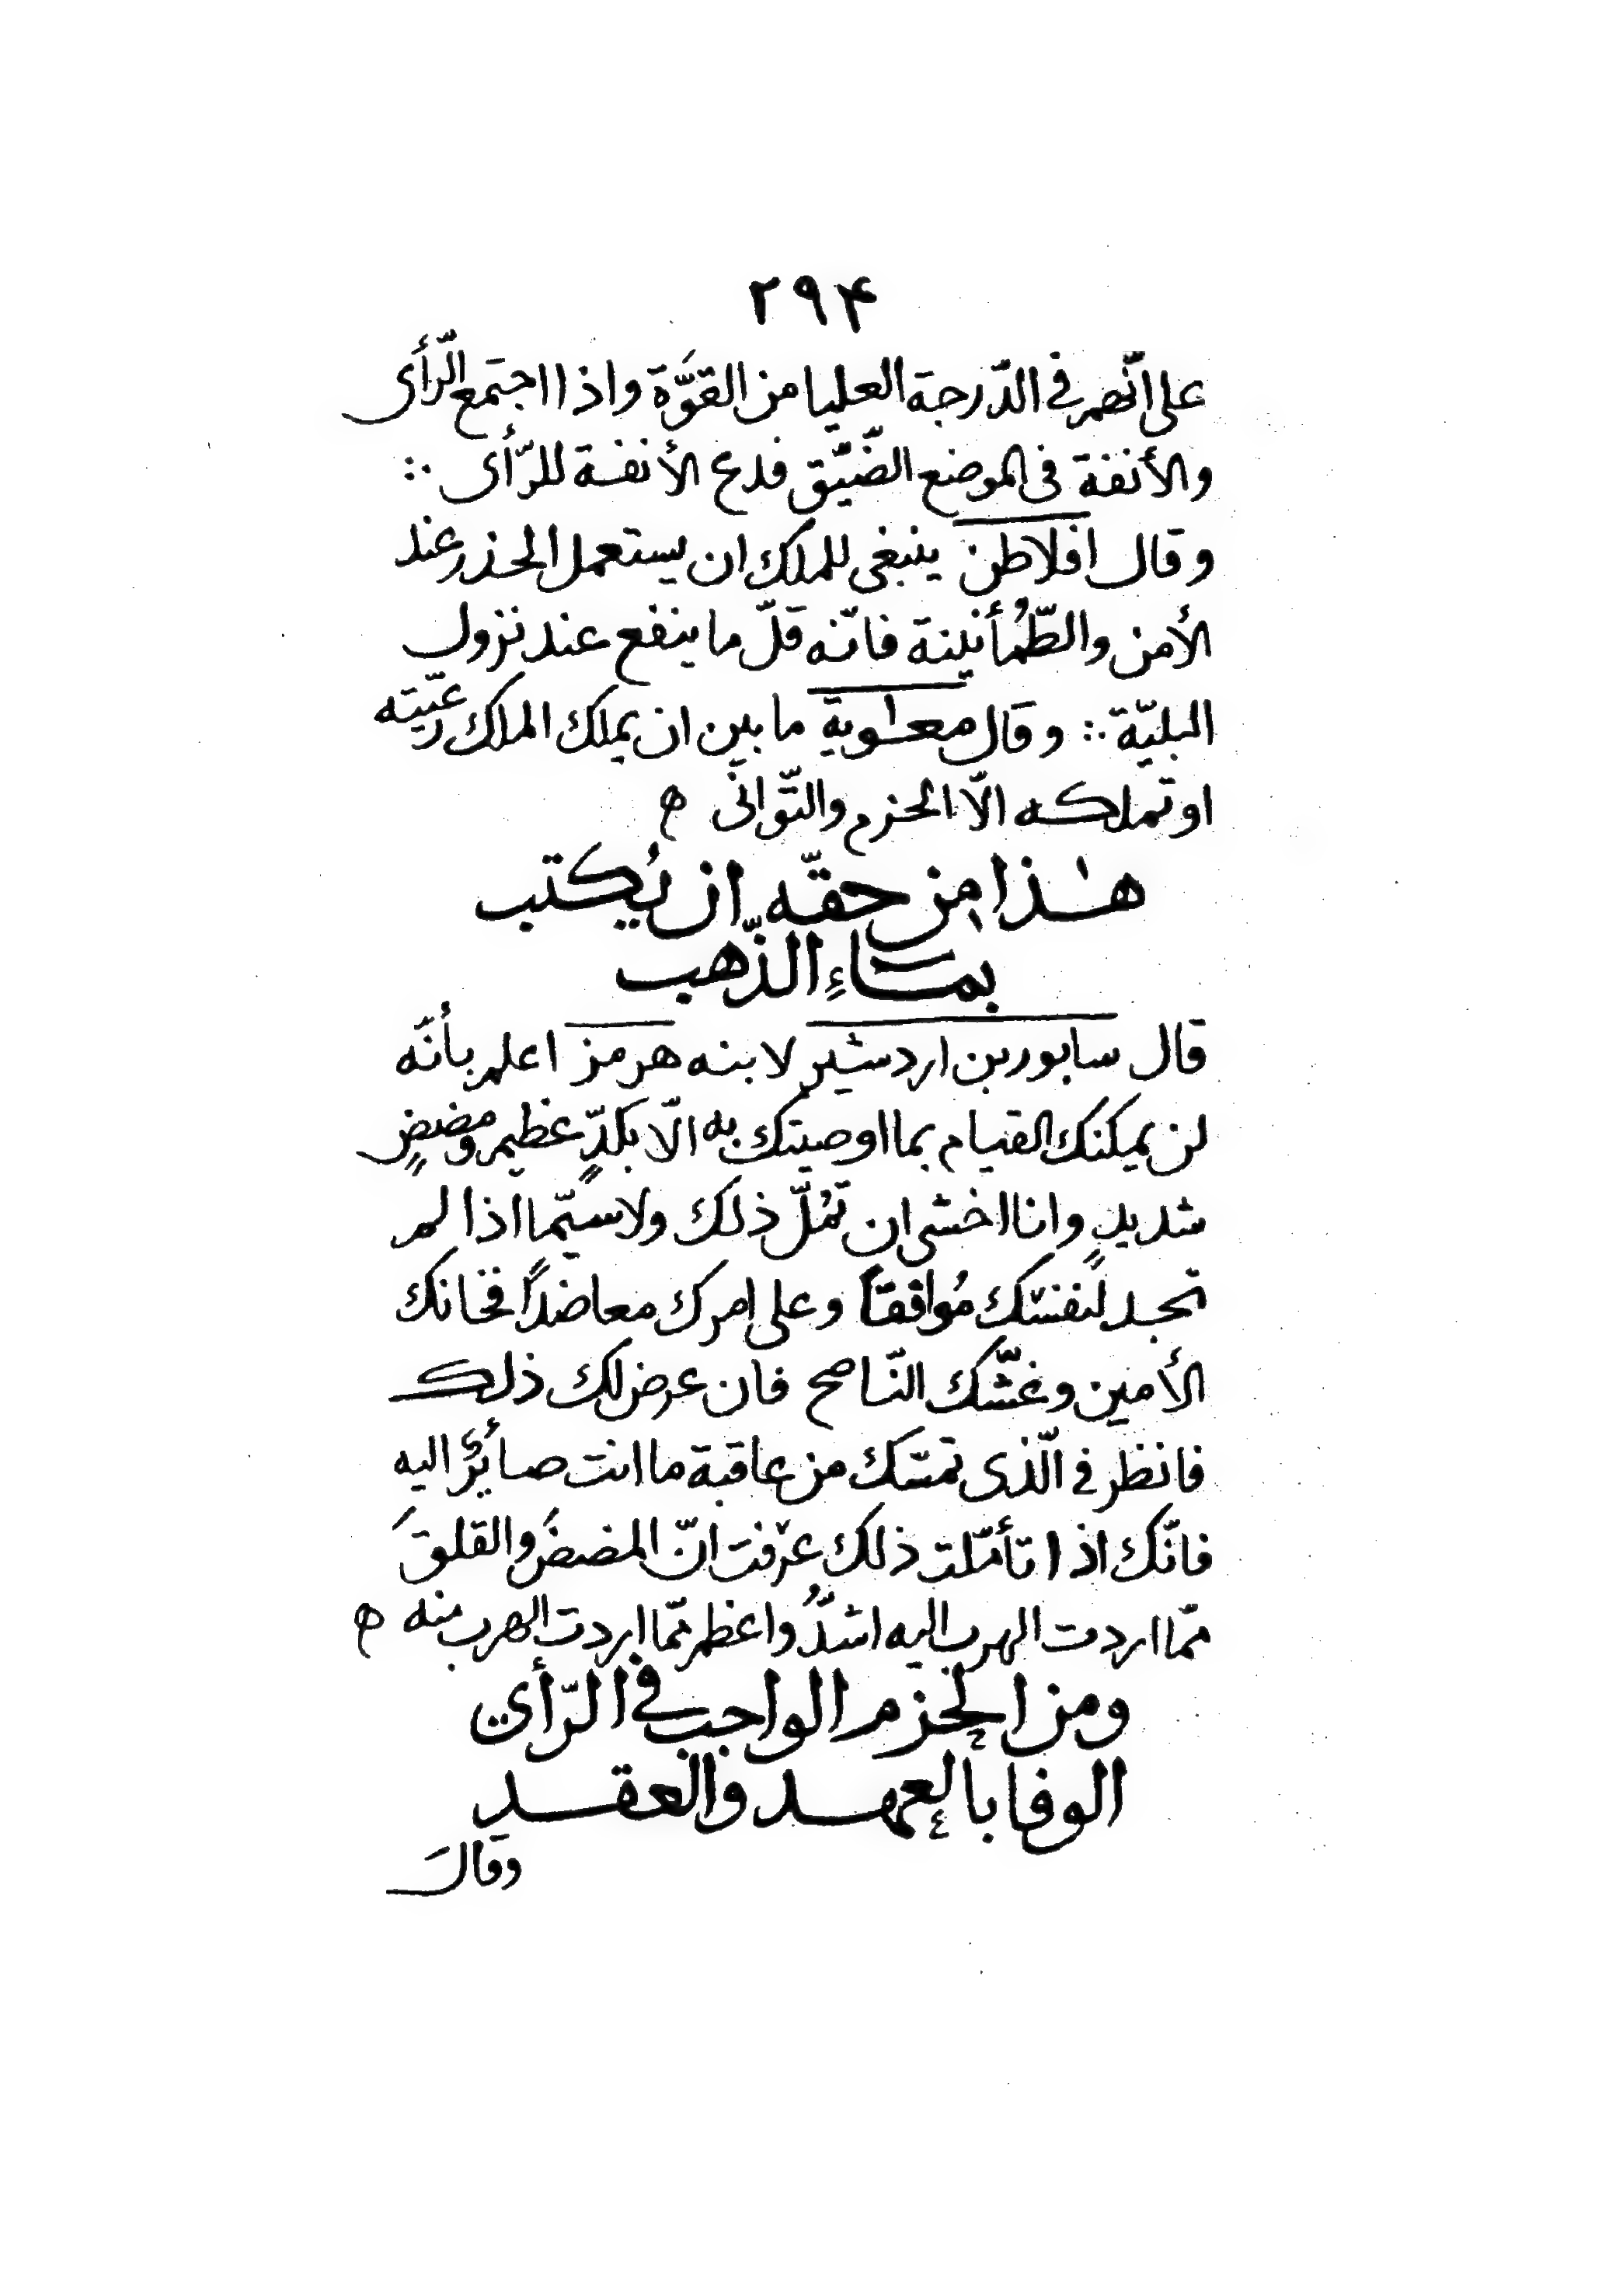 ۲۹۴
على انّهم فى الدّرجة العليا من القوَّة واذا اجتمع الرّأى
والأنفة فى الموضع الضّيّق فدع الأنفة للرّأى ∴
وقال افلاطن ينبغى للملك ان يستعمل الحذر عند
الأمن والطّمُأنينة فانّه قلّ ما ينفع عند نزول
البليّة ∴ وقال معاوية ما بين ان يملك الملك رعيّته
او تملكه الّا الحزم والتّوانى ه
هٰذا من حقّه ان يُكتب
بمآءِ الذّهب
قال سابور بن اردشير لابنه هرمز اعلم بأنّه
لن يمكنك القيام بما اوصيتك به الّا بكدٍّ عظيم ومضضٍ
شديدٍ وانا اخشى ان تمُلّ ذلك ولا سيّما اذا لم
تجد لنفسك مُوافقاً وعلى امرك معاضداً فخانك
الأمين وغشّك النّاصح فان عرض لك ذلك
فانظر فى الّذى تمسّك من عاقبة ما انت صائرٌ اليه
فانّك اذا تأمّلت ذلك عرفت انّ المضضَ والقلقَ
ممّا اردت الهرب اليه اشدُّ واعظم ممّا اردت الهرب منه ه
ومن الحزم الواجب فى الرّأي
الوفا بالعهد والعقد
وقال